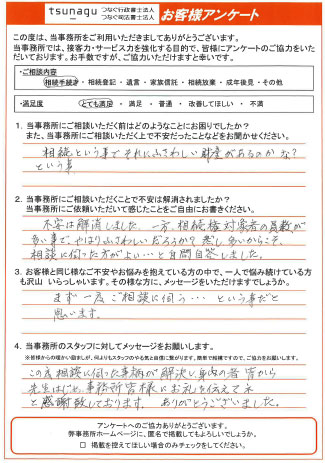 tsunagu つなぐ行政書士法人
つなぐ司法書士法人
お客様アンケート
この度は、当事務所をご利用いただきましてありがとうございます。
当事務所では、接客力・サービス力を強化する目的で、皆様にアンケートのご協力をいた
だいております。お手数ですが、ご協力いただけますと幸いです。
・ご相談内容
相続手続き・相続登記・遺言・家族信託・相続放棄・成年後見・その他
・満足度 とても満足・満足・普通・改善してほしい・不満
1. 当事務所にご相談いただく前はどのようなことにお困りでしたか?
また、当事務所にご相談いただく上で不安だったことなどをお聞かせください。
相続という事でそれにふさわしい財産があるのかな?
という事
2. 当事務所にご相談いただくことで不安は解消されましたか?
当事務所にご依頼いただいて感じたことをご自由にお書きください。
不安は解消しました。一方、相続権対象者の員数が
多い事で、やはりふさわしいだろうか? 悉し多いからこそ、
相談に伺った方がよい…と自問自答しました。
3. お客様と同じようなご不安やお悩みを抱えている方の中で、一人で悩み続けている方
も沢山いらっしゃいます。その様な方に、メッセージをいただけますでしょうか。
まず一度ご相談に伺う… という事だと
思います。
4. 当事務所のスタッフに対してメッセージをお願いします。
※皆様からの暖かい励ましが、何よりもスタッフのやる気と自信に繋がります。簡単で結構ですので、ご協力をお願いします。
この度相談に伺った事柄が解決し身内の者皆から
先生はじめ、事務所皆様にお礼を伝えてネ
と感謝致しております。ありがとうございました。
アンケートへのご協力ありがとうございます。
弊事務所ホームページに、匿名で掲載してもよろしいでしょうか。
□ 掲載を控えてほしい場合のみチェックをしてください。